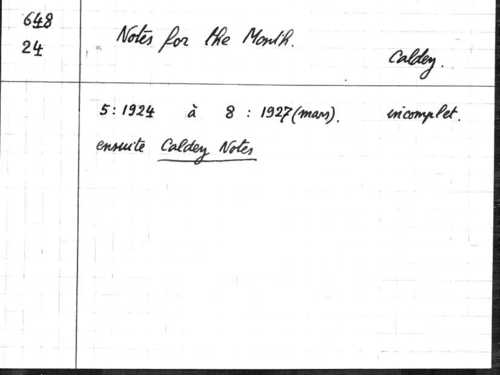 648
24
Notes for the Month.
Caldey.
5 : 1924 à 8 : 1927 (mars). incomplet.
ensuite Caldey Notes